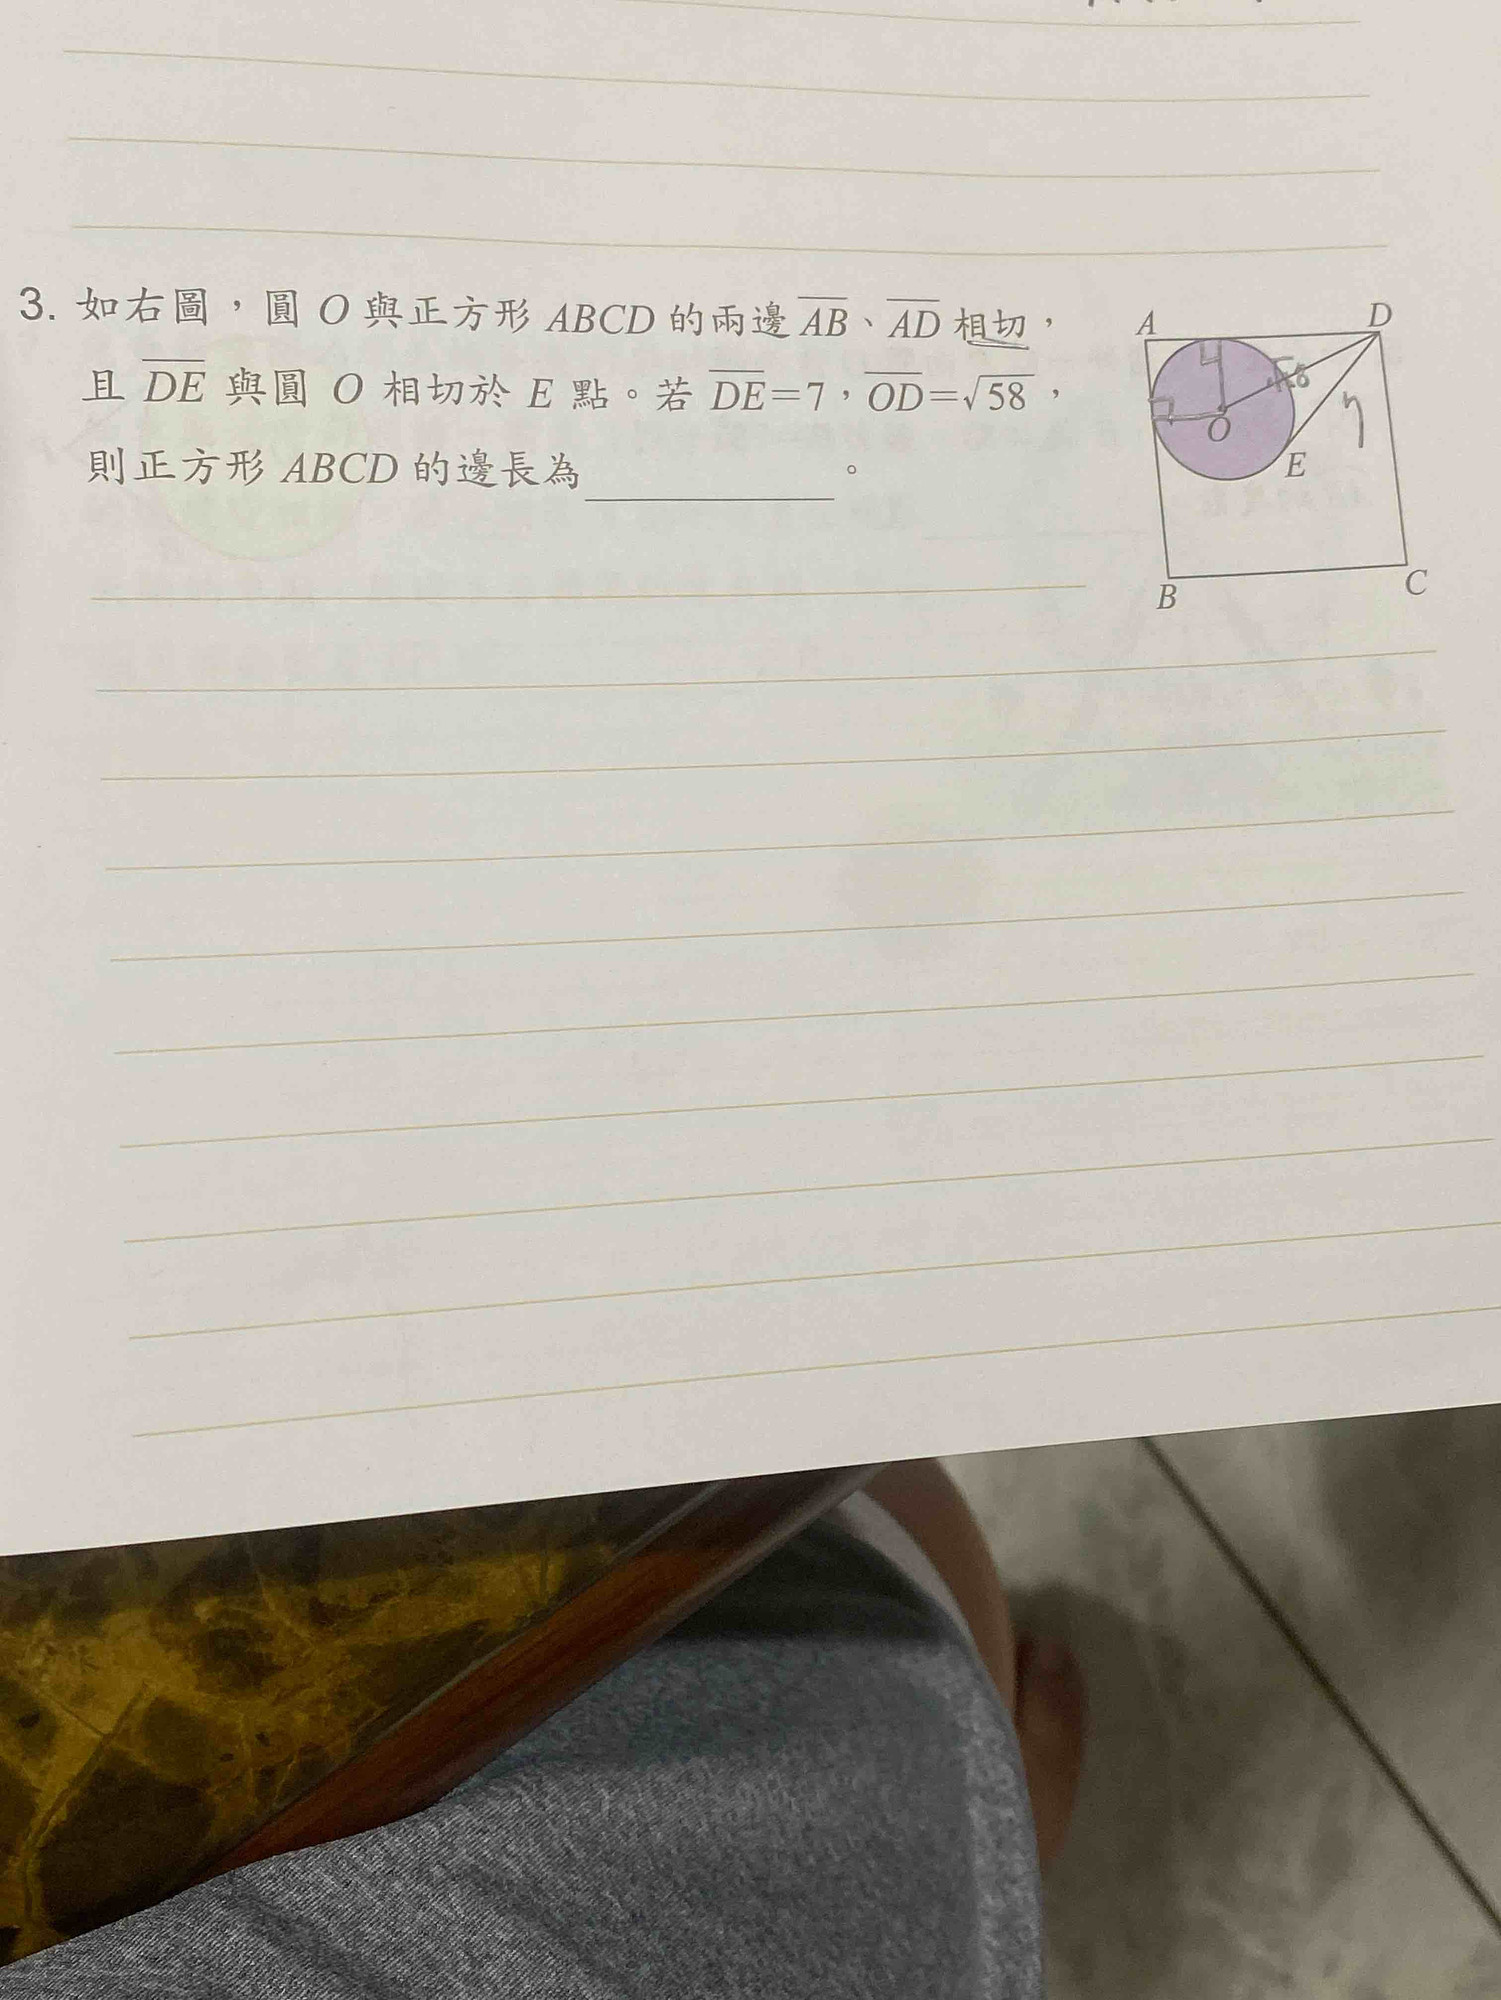 3. 如右圖，圓 O 與正方形 ABCD 的兩邊 AB、AD 相切，
且 DE 與圓 O 相切於 E 點。若 DE=7，OD=√58，
則正方形 ABCD 的邊長為＿＿＿＿＿＿。
A
D
O
E
7
B
C